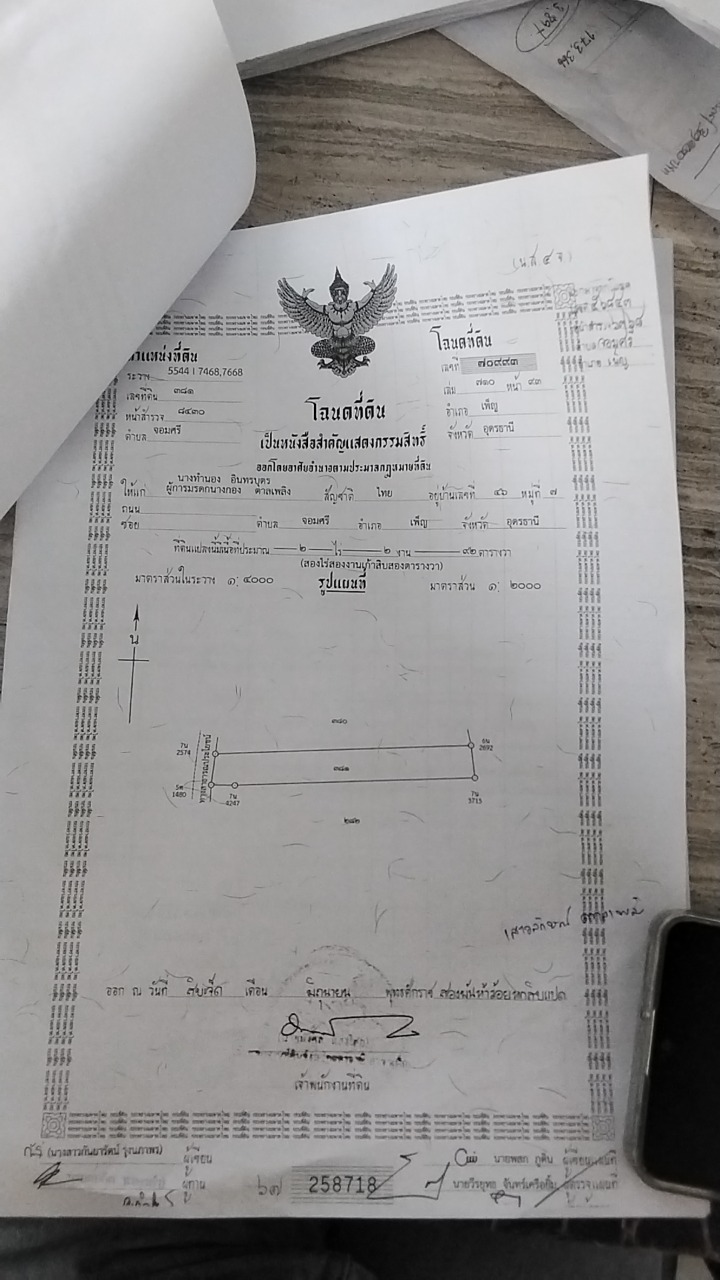 (น.ส ๔ จ)
ตำแหน่งที่ดิน
ระวาง 5544 I 7468,7668
เลขที่ดิน ๓๘๑
หน้าสำรวจ ๘๔๓๐
ตำบล จอมศรี
โฉนดที่ดิน
เลขที่ ๗๐๙๙๓
เล่ม ๗๑๐ หน้า ๙๓
อำเภอ เพ็ญ
จังหวัด อุดรธานี
โฉนดที่ดิน
เป็นหนังสือสำคัญแสดงกรรมสิทธิ์
ออกโดยอาศัยอำนาจตามประมวลกฎหมายที่ดิน
นางทำนอง อินทรบุตร
ให้แก่ ผู้การมรดกนางกอง ตาลเพลิง สัญชาติ ไทย อยู่บ้านเลขที่ ๔๖ หมู่ที่ ๗
ถนน
ซอย ตำบล จอมศรี อำเภอ เพ็ญ จังหวัด อุดรธานี
ที่ดินแปลงนี้มีเนื้อที่ประมาณ ๒ ไร่ ๒ งาน ๙๒ ตารางวา
(สองไร่สองงานเก้าสิบสองตารางวา)
มาตราส่วนในระวาง ๑: ๔๐๐๐ รูปแผนที่ มาตราส่วน ๑: ๒๐๐๐
น
๓๘๐
7น 2574
ทางสาธารณประโยชน์
6น 2692
๓๘๑
1480
7น 4247
7น 3715
๒๘๒
ออก ณ วันที่ สิบเจ็ด เดือน มิถุนายน พุทธศักราช สองพันห้าร้อยหกสิบแปด
เจ้าพนักงานที่ดิน
(นางสาวกันยารัตน์ รุ่งนภาพร) ผู้เขียน
ผู้ทาน
๖๗ 258718
นายพสก ภูดิน ผู้เขียนแผนที่
นายวีรยุทธ จันทร์เครือยิ้ม ผู้ตรวจแผนที่